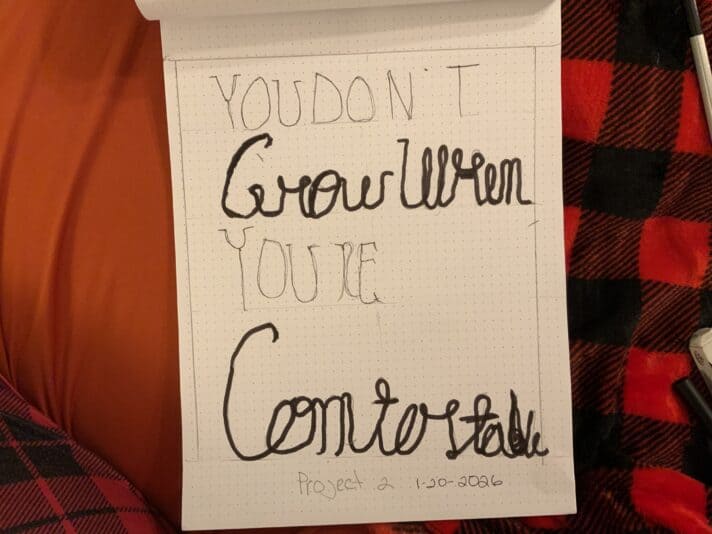 YOU DON'T
Grow When
YOU'RE
Comfortable
Project 2 1-20-2026